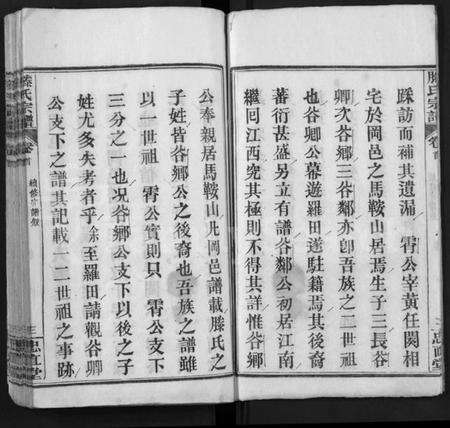 踩訪而補其遺漏 霄公宰黃任閱相
宅於岡邑之馬鞍山居焉生子三長谷
卿次谷鄉三谷鄰亦卽吾族之二世祖
也谷卿公慕遊羅田遂駐籍焉其後裔
蕃衍甚盛另立有譜谷鄰公初居江南
繼回江西究其極則不得其詳惟谷鄉
滕氏宗譜 卷首
忠直堂
公奉親居馬鞍山凡岡邑譜載滕氏之
子姓皆谷鄉公之後裔也吾族之譜雖
以一世祖 霄公實則只 霄公支下
三分之一也況谷鄉公支下以後之子
姓尤多失考者乎余至羅田請觀谷卿
公支下之譜其記載一二世祖之事跡
滕氏宗譜 卷首 續修譜敘 三 忠直堂